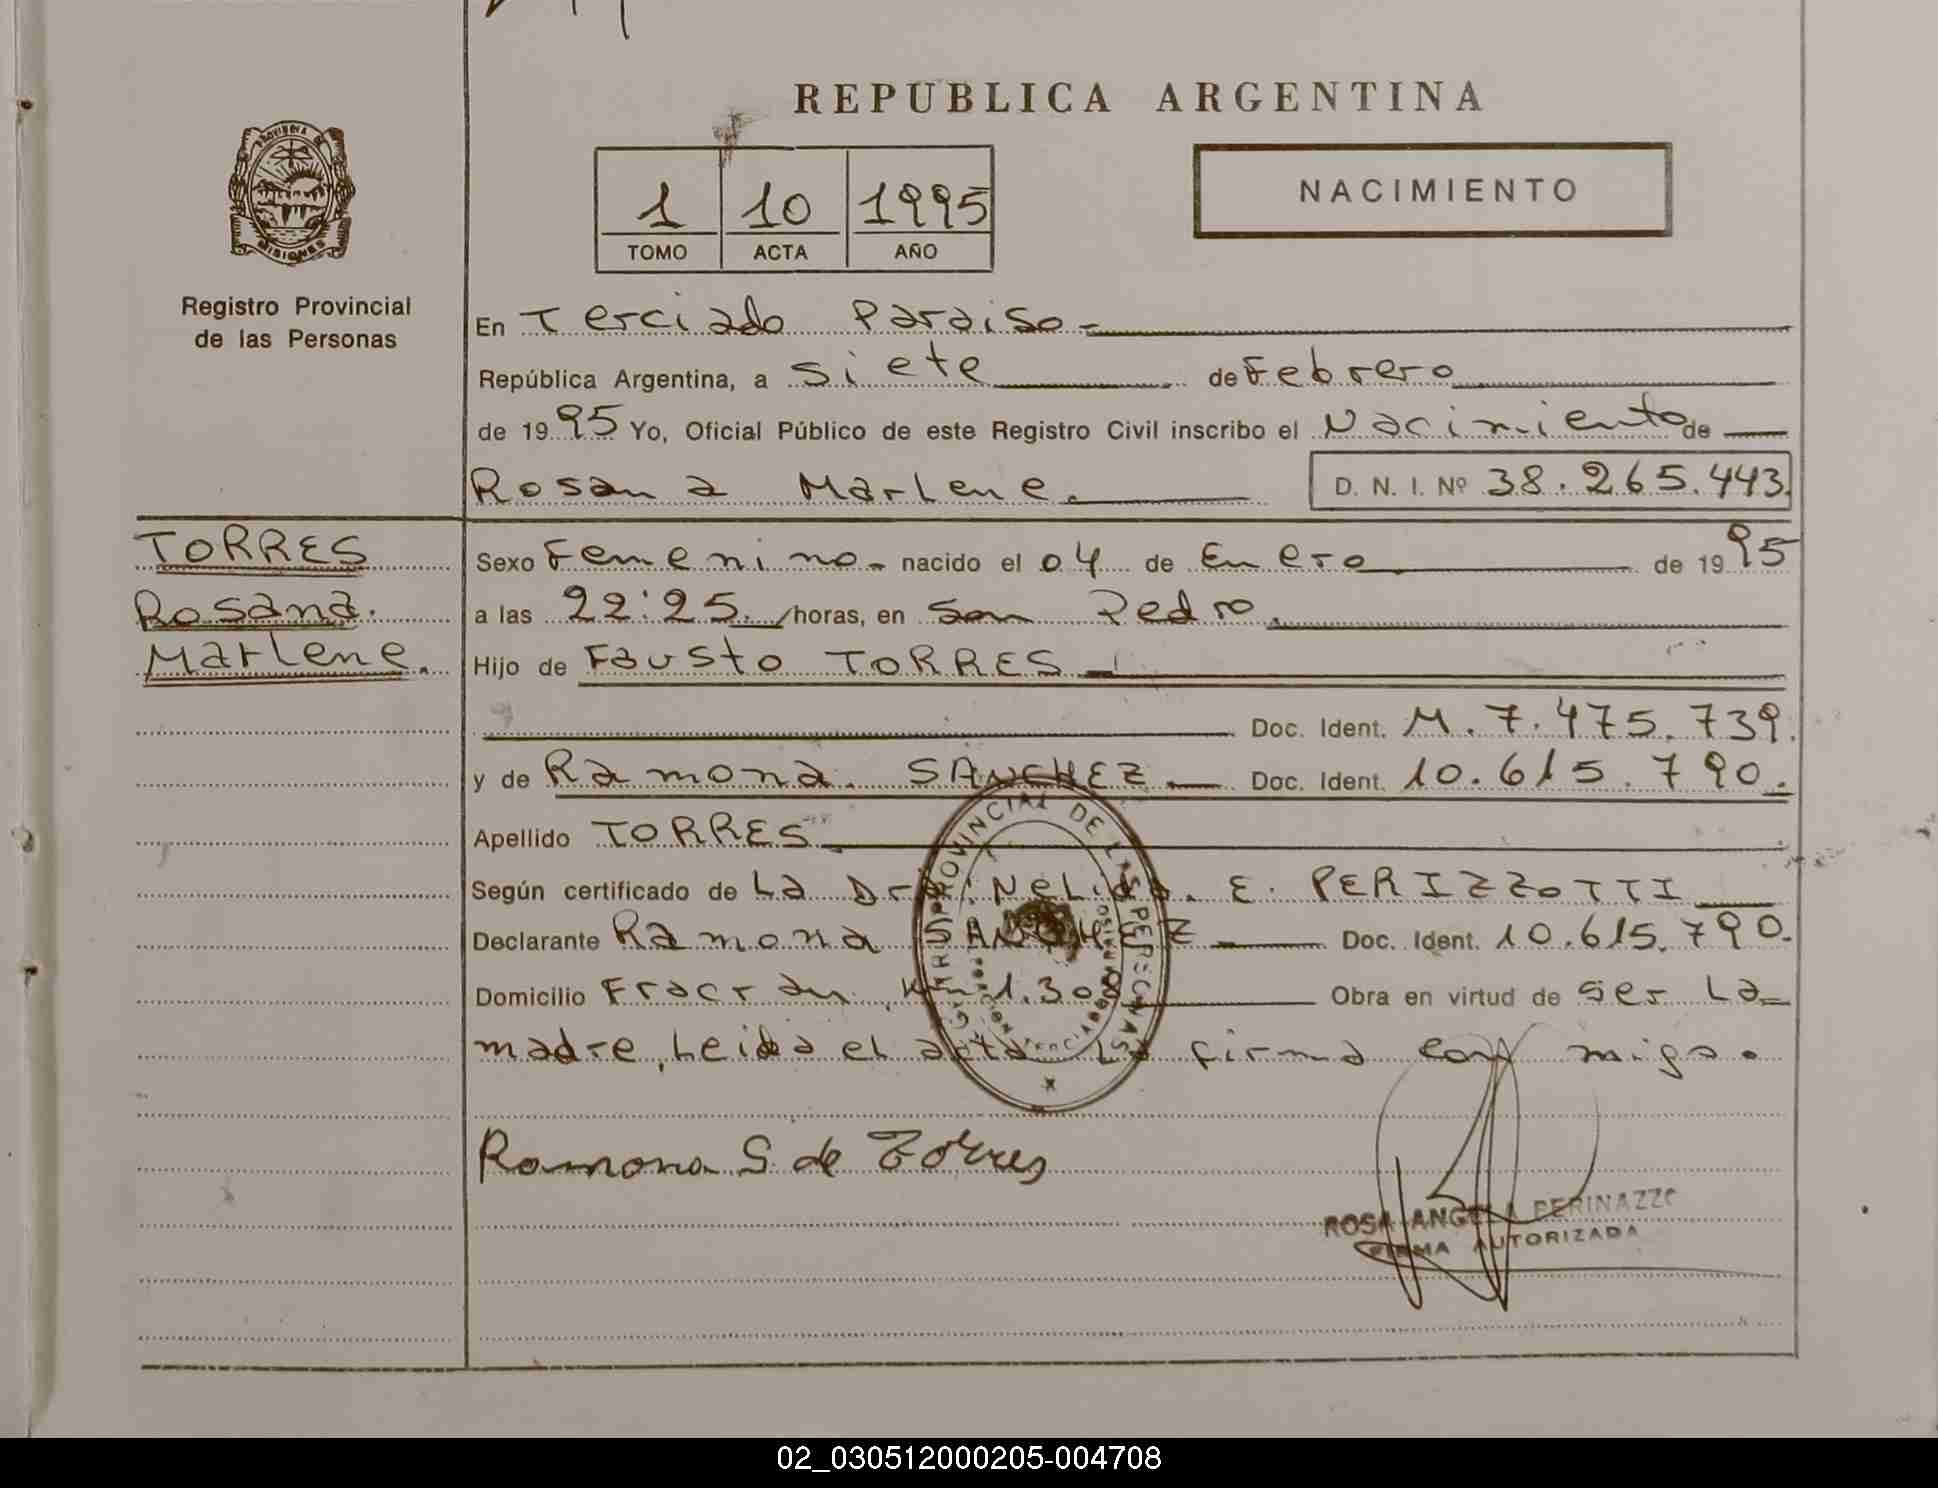 REPUBLICA ARGENTINA
PROVINCIA DE
MISIONES
Registro Provincial
de las Personas
1 10 1995
TOMO ACTA AÑO
NACIMIENTO
En Terciado Paraiso.-
República Argentina, a siete de Febrero
de 19 95 Yo, Oficial Público de este Registro Civil inscribo el Nacimiento de
Rosana Marlene. D. N. I. Nº 38.265.443.
TORRES
Rosana.
Marlene.
Sexo Femenino.- nacido el 04 de Enero de 19 95
a las 22:25. /horas, en San Pedro.
Hijo de Fausto TORRES
Doc. Ident. M. 7.475.739.
y de Ramona. SANCHEZ.- Doc. Ident. 10.615.790.
Apellido TORRES.
Según certificado de La Dra. Nelida. E. PERIZZOTTI
Declarante Ramona SANCHEZ Doc. Ident. 10.615.790.
Domicilio Fracran, Km 1.308 Obra en virtud de ser La
madre, Leida el acta La firma conmigo.
PROVINCIAL DE LAS PERSONAS
Ramona S. de Torres
ROSA ANGELA PERINAZZO
FIRMA AUTORIZADA
02_030512000205-004708